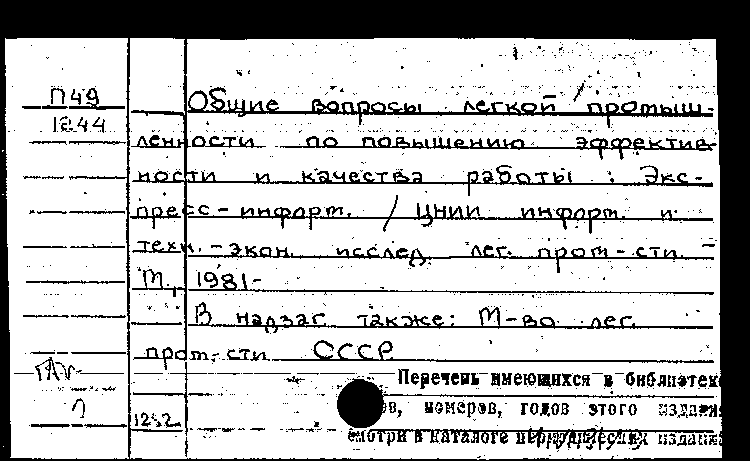 П49
1244
Общие вопросы легкой промыш-
ленности по повышению эффектив-
ности и качества работы : Экс-
пресс-информ. / ЦНИИ информ. и
техн.-экон. исслед. лег. пром-сти. -
М., 1981-
В надзаг также: М-во лег.
пром-сти СССР
Перечень имеющихся в библиотеке
ов, номеров, годов этого издания
1252
смотри в каталоге периодических издани